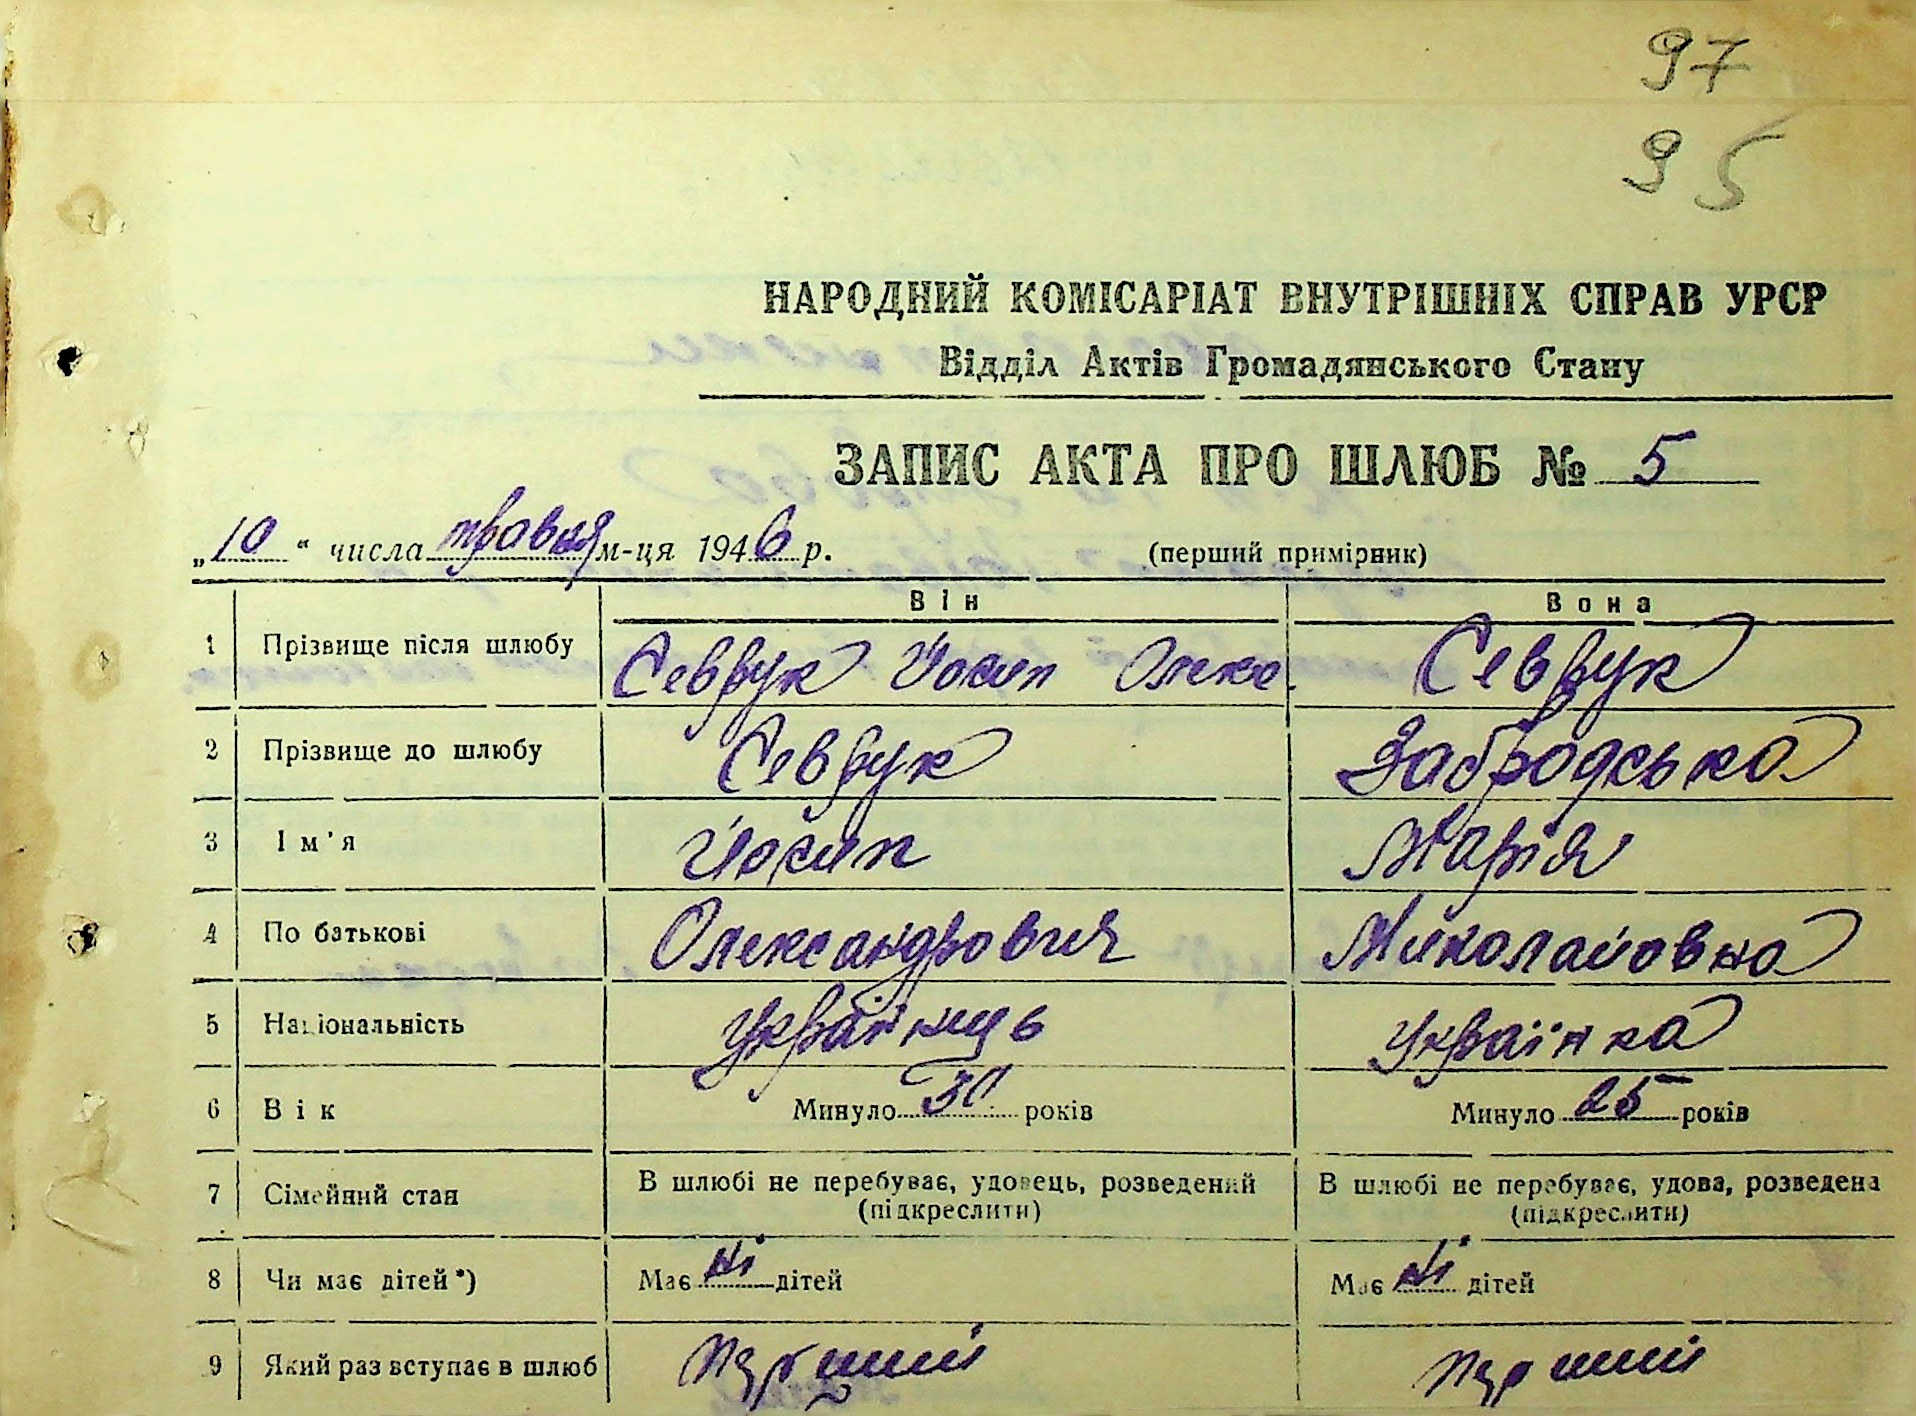 97
95
НАРОДНИЙ КОМІСАРІАТ ВНУТРІШНІХ СПРАВ УРСР
Відділ Актів Громадянського Стану
ЗАПИС АКТА ПРО ШЛЮБ № 5
„10“ числа травня м-ця 1946 р. (перший примірник)
Він Вона
1 Прізвище після шлюбу Севрук Йосип Олекс. Севрук
2 Прізвище до шлюбу Севрук Забродська
3 Ім'я Йосип Марія
4 По батькові Олександрович Миколаївна
5 Національність Українець Українка
6 Вік Минуло 30 років Минуло 25 років
7 Сімейний стан В шлюбі не перебуває, удовець, розведений (підкреслити) В шлюбі не перебуває, удова, розведена (підкреслити)
8 Чи має дітей*) Має ні дітей Має ні дітей
9 Який раз вступає в шлюб перший перший